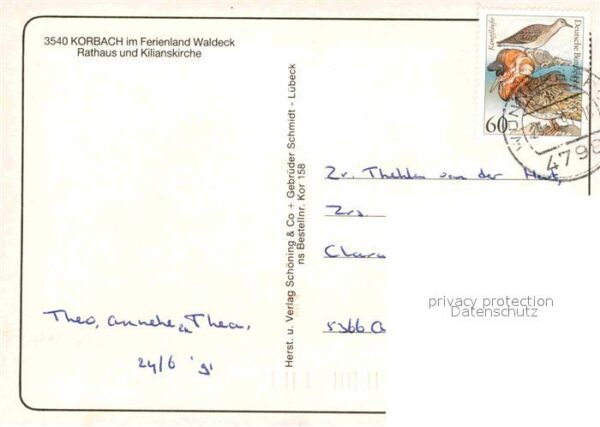 3540 KORBACH im Ferienland Waldeck
Rathaus und Kilianskirche
Herst. u. Verlag Schöning & Co + Gebrüder Schmidt - Lübeck
ns Bestellnr. Kor 158
Kampfläufer
Deutsche Bundes
60
4798
Zr. Thekla van der
Zrs
Clara
5366
Theo, Anneke en Thea.
24/6 '91
privacy protection
Datenschutz